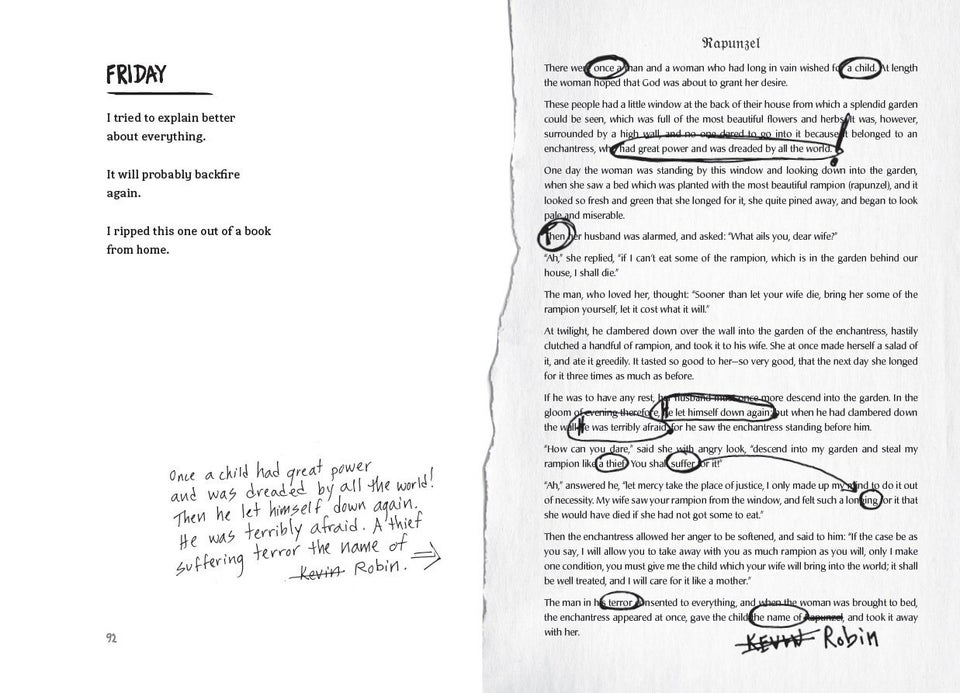 FRIDAY
I tried to explain better
about everything.
It will probably backfire
again.
I ripped this one out of a book
from home.
Once a child had great power
and was dreaded by all the world!
Then he let himself down again.
He was terribly afraid. A thief
suffering terror the name of
Kevin Robin.
92
Rapunzel
There were once a man and a woman who had long in vain wished for a child. At length
the woman hoped that God was about to grant her desire.
These people had a little window at the back of their house from which a splendid garden
could be seen, which was full of the most beautiful flowers and herbs. It was, however,
surrounded by a high wall, and no one dared to go into it because it belonged to an
enchantress, who had great power and was dreaded by all the world.!
One day the woman was standing by this window and looking down into the garden,
when she saw a bed which was planted with the most beautiful rampion (rapunzel), and it
looked so fresh and green that she longed for it, she quite pined away, and began to look
pale and miserable.
Then her husband was alarmed, and asked: “What ails you, dear wife?”
“Ah,” she replied, “if I can’t eat some of the rampion, which is in the garden behind our
house, I shall die.”
The man, who loved her, thought: “Sooner than let your wife die, bring her some of the
rampion yourself, let it cost what it will.”
At twilight, he clambered down over the wall into the garden of the enchantress, hastily
clutched a handful of rampion, and took it to his wife. She at once made herself a salad of
it, and ate it greedily. It tasted so good to her—so very good, that the next day she longed
for it three times as much as before.
If he was to have any rest, her husband must once more descend into the garden. In the
gloom of evening therefore, he let himself down again; but when he had clambered down
the wall He was terribly afraid, for he saw the enchantress standing before him.
“How can you dare,” said she with angry look, “descend into my garden and steal my
rampion like a thief? You shall suffer for it!”
“Ah,” answered he, “let mercy take the place of justice, I only made up my mind to do it out
of necessity. My wife saw your rampion from the window, and felt such a longing for it that
she would have died if she had not got some to eat.”
Then the enchantress allowed her anger to be softened, and said to him: “If the case be as
you say, I will allow you to take away with you as much rampion as you will, only I make
one condition, you must give me the child which your wife will bring into the world; it shall
be well treated, and I will care for it like a mother.”
The man in his terror consented to everything, and when the woman was brought to bed,
the enchantress appeared at once, gave the child the name of Rapunzel, and took it away
with her.
KEVIN Robin